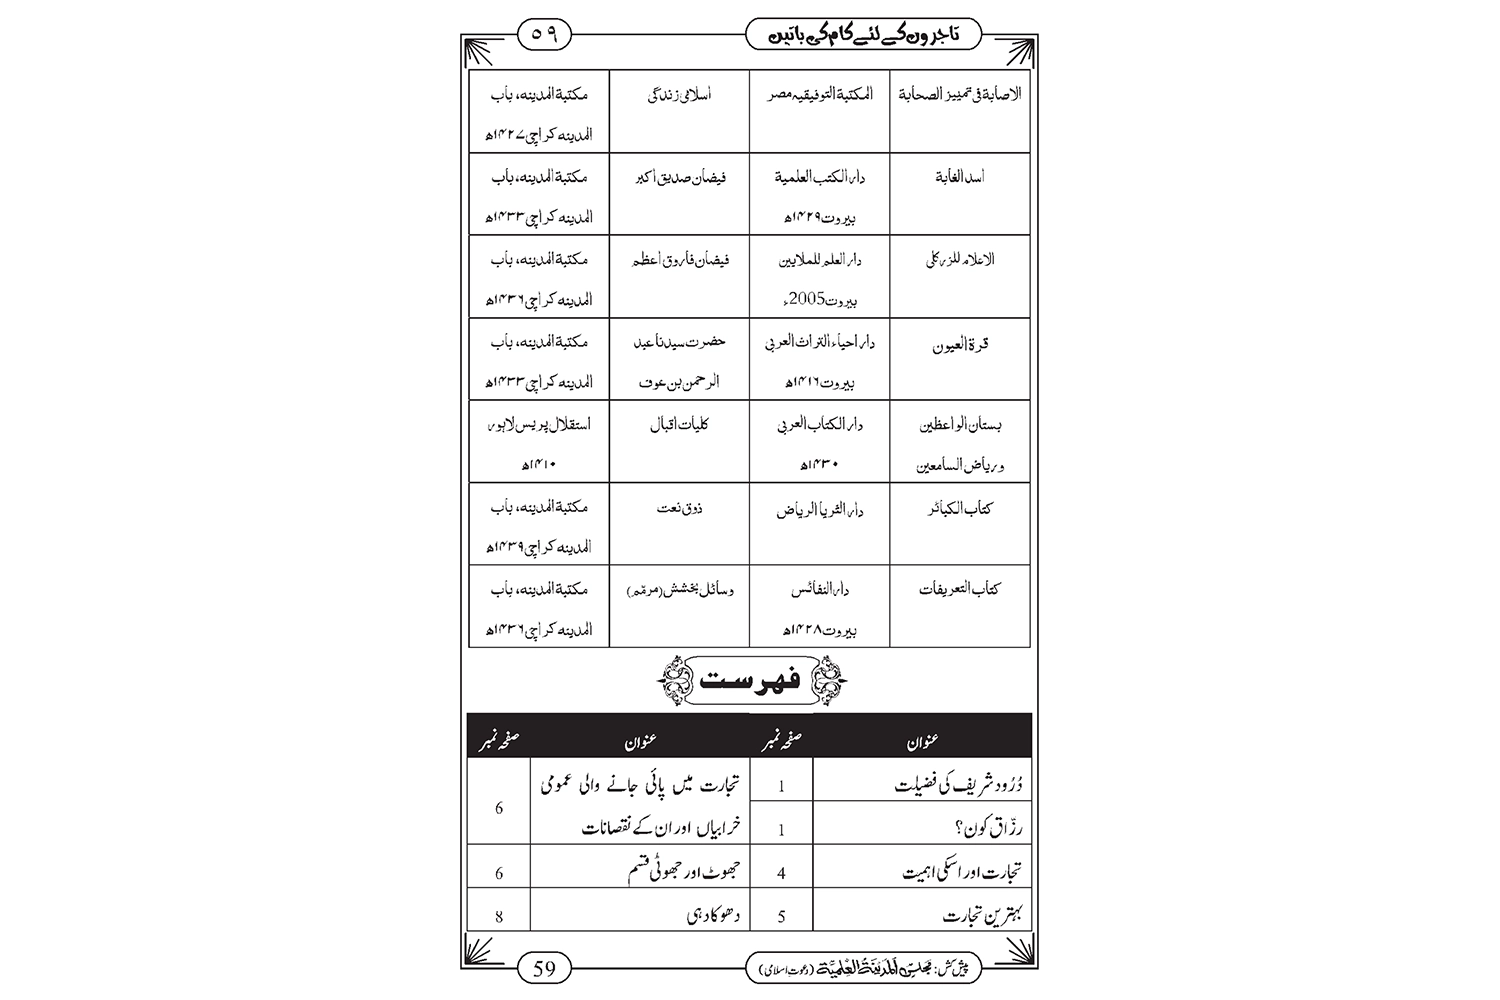 تاجروں کے لئے کام کی باتیں
۵۹
الاصابة فی تمییز الصحابة
المکتبة التوفیقیہ مصر
اسلامی زندگی
مکتبة المدینہ، باب
المدینہ کراچی ۱۴۲۷ھ
اسد الغابة
دار الکتب العلمیة
بیروت ۱۴۲۹ھ
فیضان صدیق اکبر
مکتبة المدینہ، باب
المدینہ کراچی ۱۴۳۳ھ
الاعلام للزرکلی
دار العلم للملایین
بیروت 2005ء
فیضان فاروق اعظم
مکتبة المدینہ، باب
المدینہ کراچی ۱۴۳۶ھ
قرة العیون
دار احیاء التراث العربی
بیروت ۱۴۱۶ھ
حضرت سیدنا عبد
الرحمن بن عوف
مکتبة المدینہ، باب
المدینہ کراچی ۱۴۳۳ھ
بستان الواعظین
وریاض السامعین
دار الکتاب العربی
۱۴۳۰ھ
کلیات اقبال
استقلال پریس لاہور
۱۴۱۰ھ
کتاب الکبائر
دار الثریا الریاض
ذوق نعت
مکتبة المدینہ، باب
المدینہ کراچی ۱۴۳۹ھ
کتاب التعریفات
دار النفائس
بیروت ۱۴۲۸ھ
وسائل بخشش (مرمّم)
مکتبة المدینہ، باب
المدینہ کراچی ۱۴۳۶ھ
فہرست
عنوان صفحہ نمبر عنوان صفحہ نمبر
دُرُود شریف کی فضیلت 1
تجارت میں پائی جانے والی عمومی
خرابیاں اور ان کے نقصانات 6
رزّاق کون؟ 1
تجارت اور اسکی اہمیت 4
جھوٹ اور جھوٹی قسم 6
بہترین تجارت 5
دھوکا دہی 8
پیش کش: مجلس المدینۃ العلمیۃ (دعوت اسلامی)
59